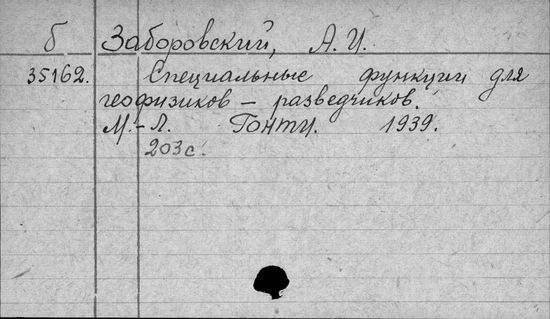 б Заборовский, А.И.
35162. Специальные функции для
геофизиков – разведчиков.
М.-Л. Гонти. 1939.
203с.